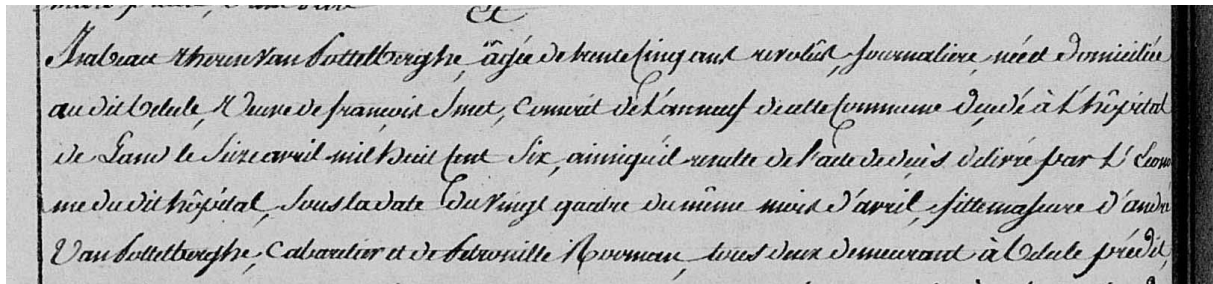 Isabeau therese Van Pottelberghe, âgée de trente cinq ans revolus, journaliere, née et domiciliée
au dit Edele, Veuve de françois Smet, Conscrit de l'an neuf de cette Commune decedé à l'hôpital
de Gand le Seize avril mil huit Cent Six, ainsi qu'il resulte de l'acte de decès delivré par l'Econo
me du dit hôpital, Sous la date du Vingt quatre du même mois d'avril, fille majeure d'andré
Van Pottelberghe, Cabaretier et de Petronille Rooman, tous deux demeurant à Edele prédit,